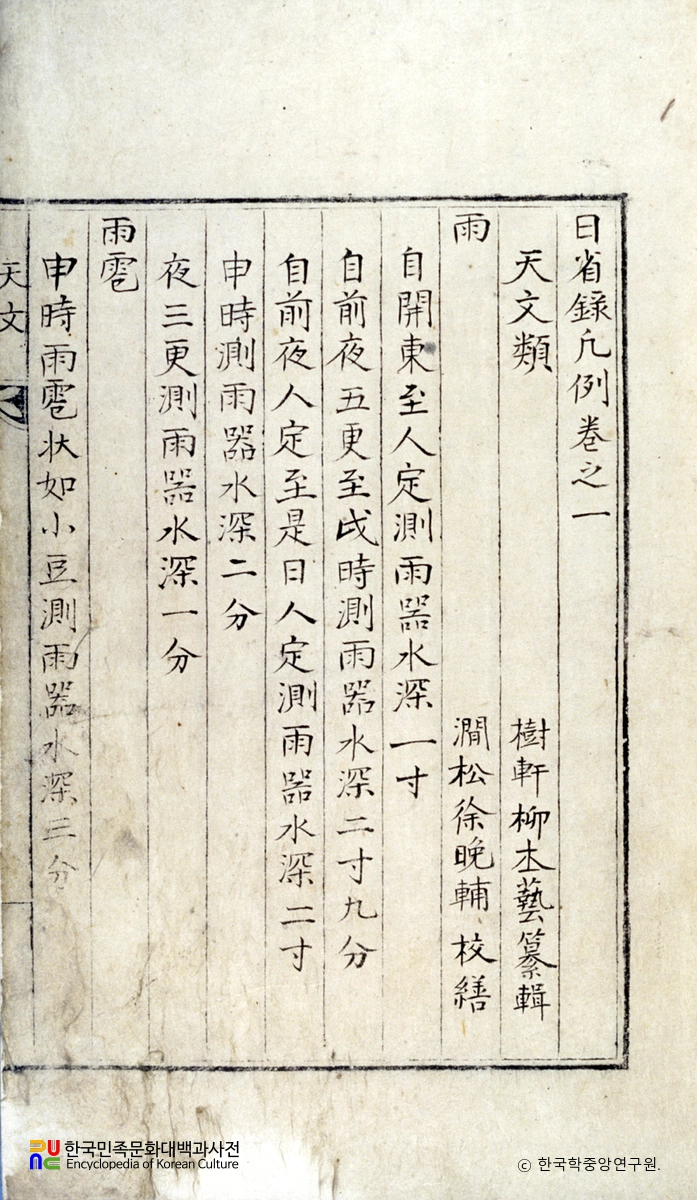 日省錄凡例卷之一
天文類 樹軒柳本藝纂輯
雨 澗松徐晚輔 校繕
自開東至人定測雨器水深一寸
自前夜五更至戌時測雨器水深二寸九分
自前夜人定至是日人定測雨器水深二寸
申時測雨器水深二分
夜三更測雨器水深一分
雨雹
申時雨雹状如小豆測雨器水深三分
天文
한국민족문화대백과사전
Encyclopedia of Korean Culture
ⓒ 한국학중앙연구원.